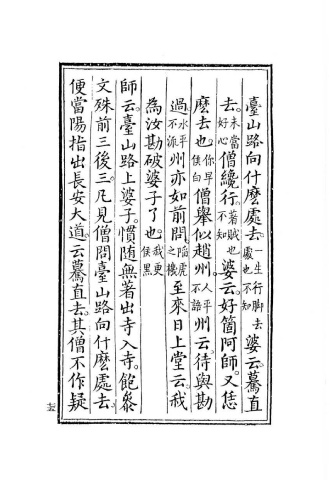 臺山路向什麼處去。一生行脚去處也不知婆云。驀直
去。未當好心僧纔行。著賊也不知婆云。好箇阿師。又恁
麼去也。你早侯白僧舉似趙州。人平不語州云。待與勘
過。水平不流州亦如前問。陷虎之機至來日上堂云。我
為汝勘破婆子了也。我更侯黑
師云。臺山路上婆子。慣隨無著出寺入寺。飽參
文殊前三後三。凡見僧問臺山路向什麼處去。
便當陽指出長安大道。云驀直去。其僧不作疑